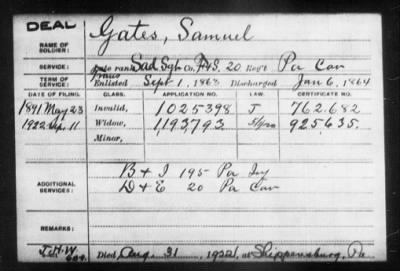 DEAL
Gates, Samuel
NAME OF SOLDIER:
SERVICE: Late rank Sad Sgt Co. F&S. 20 Reg't Pa Cav
TERM OF SERVICE: Enlisted Sept 1, 1863 Discharged Jan 6, 1864
DATE OF FILING. CLASS. APPLICATION NO. LAW. CERTIFICATE NO.
1891 May 23 Invalid, 1025398 J 762.682
1922 Sep. 11 Widow, 1193793 925635.
Minor,
ADDITIONAL SERVICES: B & I 195 Pa Inf
D & E 20 Pa Cav
REMARKS:
J.H.W.
Died Aug. 31, 1922, at Shippensburg, Pa